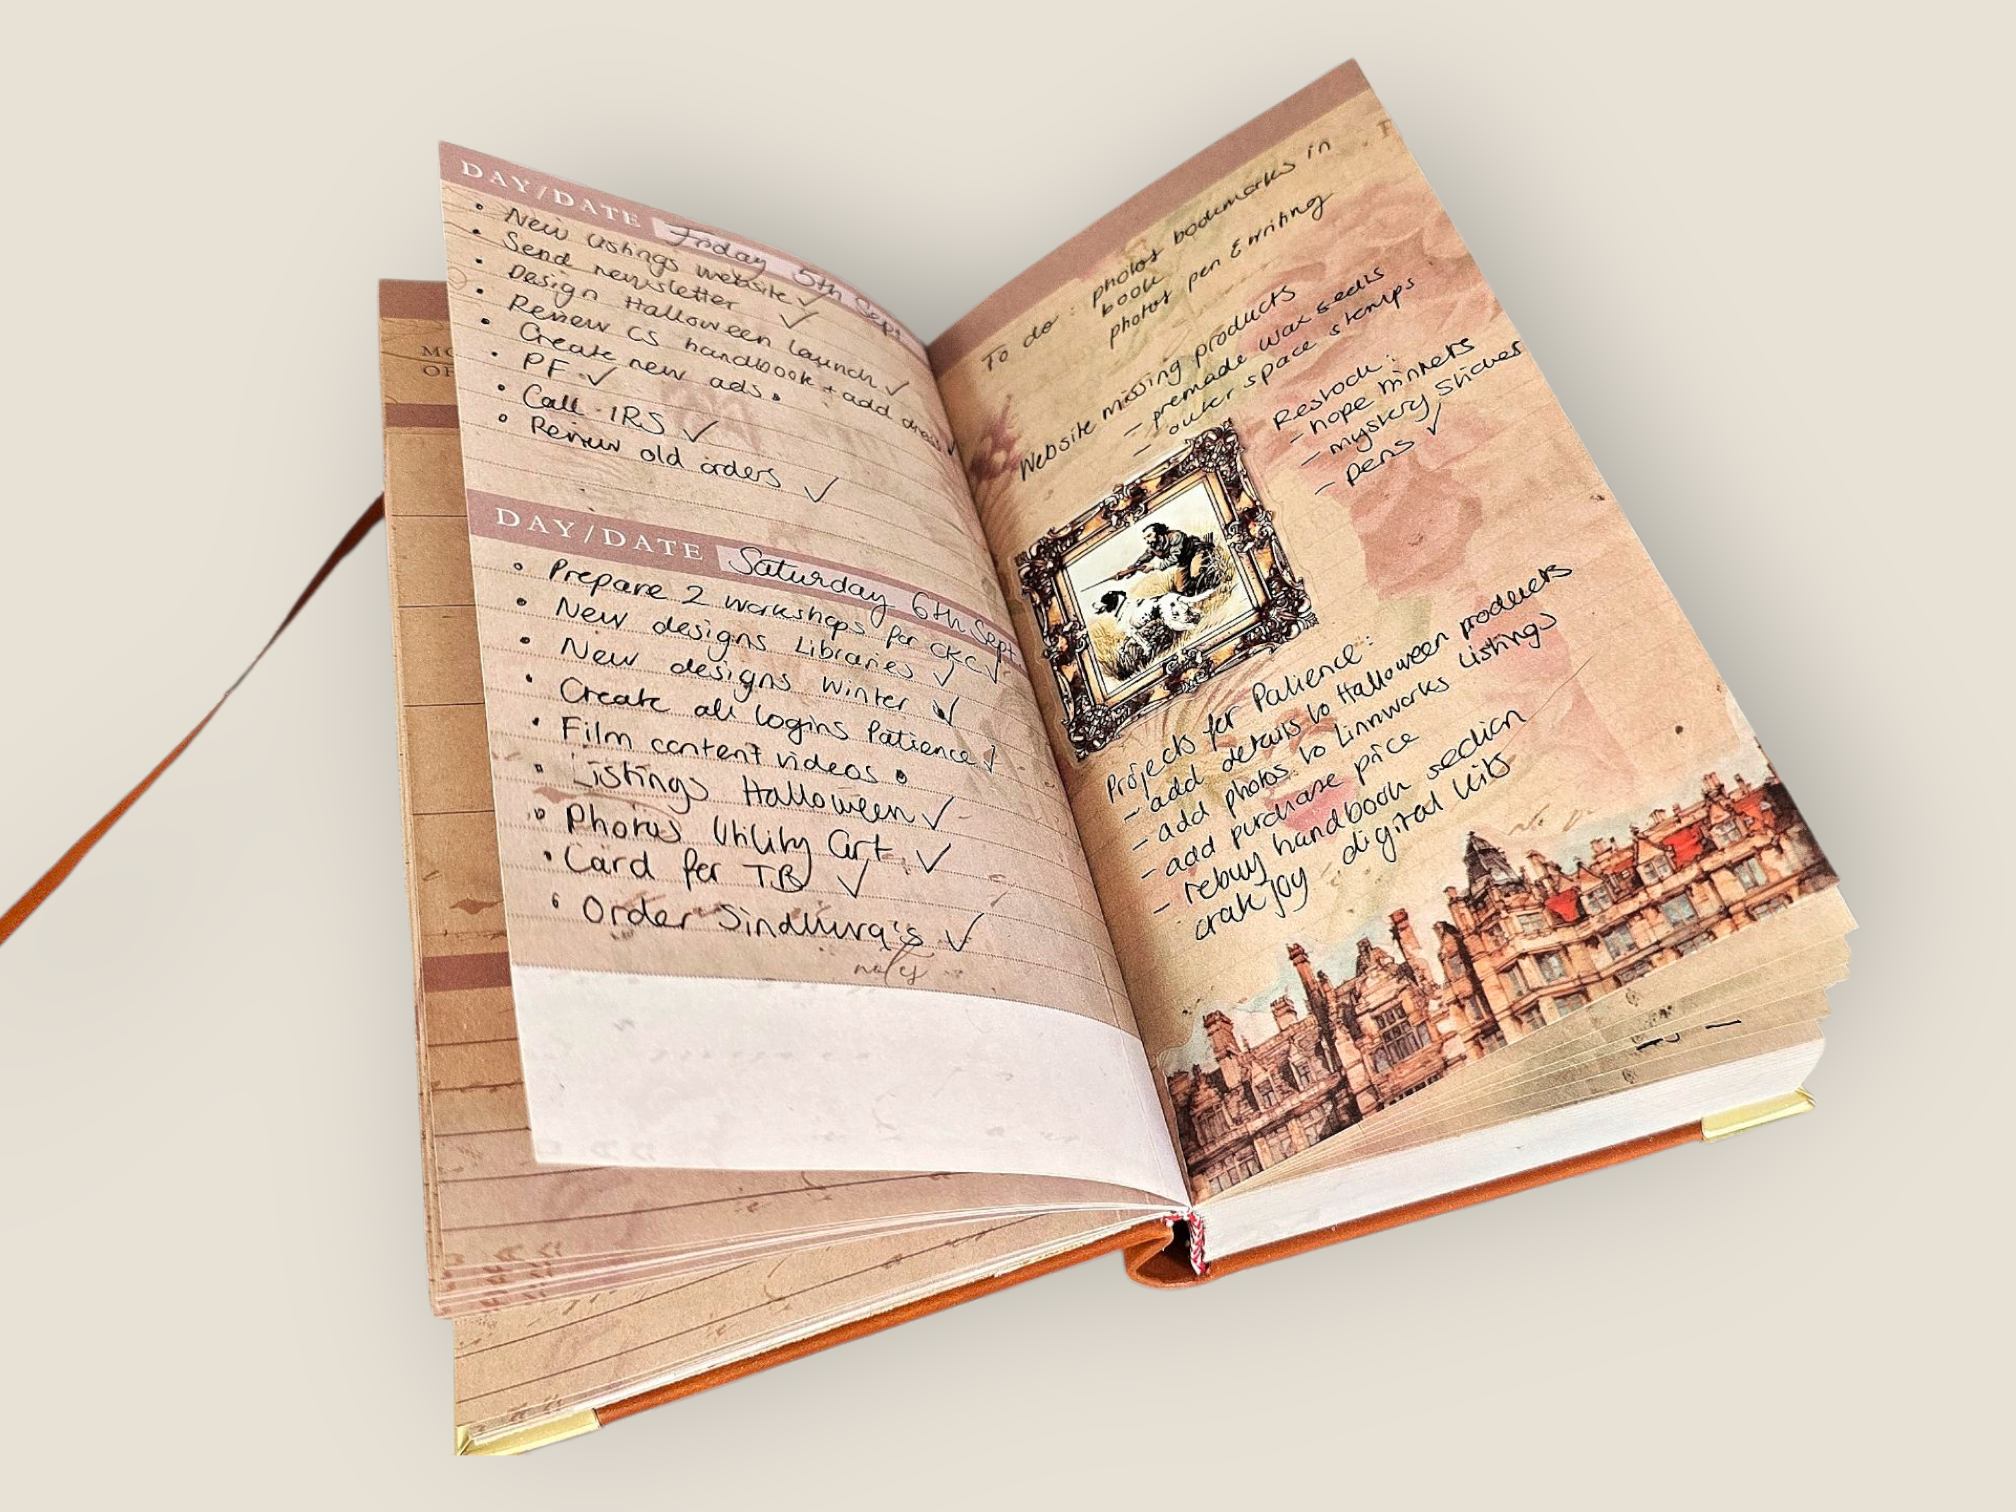 DAY/DATE Friday 5th Sept
• New listings website ✓
• Send newsletter ✓
• Design Halloween launch ✓
• Review CS handbook + add ✓
• Create new ads •
• PF ✓
• Call IRS ✓
• Review old orders ✓
DAY/DATE Saturday 6th Sept
• Prepare 2 workshops for CKC ✓
• New designs Libraries ✓
• New designs Winter ✓
• Create all logins Patience ✓
• Film content videos •
• Listings Halloween ✓
• Photos Utility Cart ✓
• Card for TB ✓
• Order Sindhura's ✓
notes
To do: photos bookmarks in
book
photos pen & writing
Website missing products
- premade wax seals
- outer space stamps
Restock:
- hope minkets
- mystery sticker
- pens ✓
Projects for Patience:
- add details to Halloween products
- add photos to Linnworks listings
- add purchase price
- rebuy handbook section
cratejoy digital kits
MO
OF